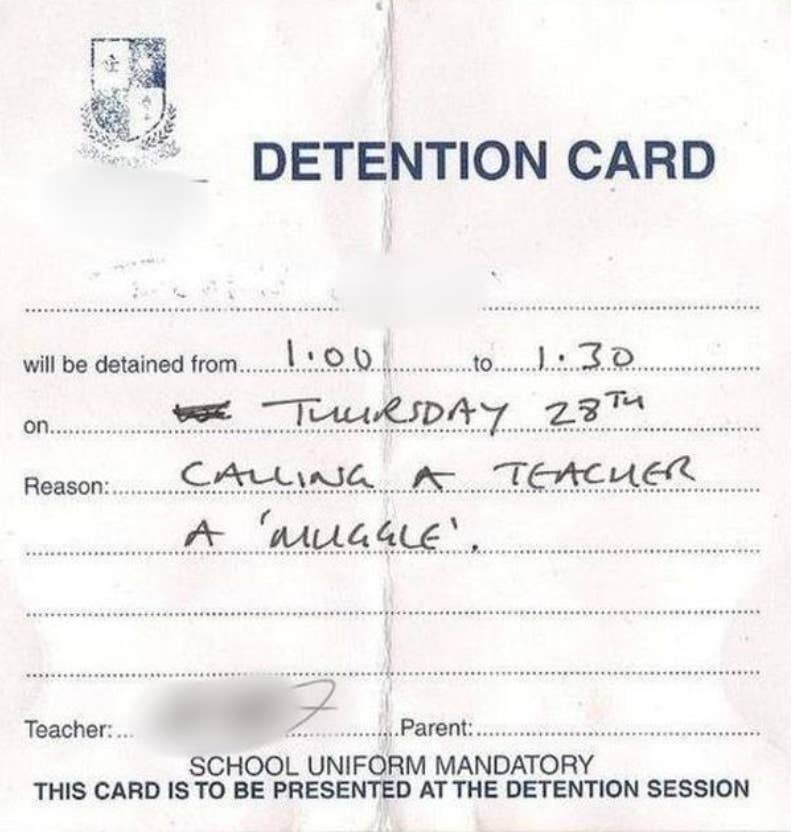 DETENTION CARD
will be detained from 1.00 to 1.30
on THURSDAY 28TH
Reason: CALLING A TEACHER
A 'MUGGLE'.
Teacher: Parent:
SCHOOL UNIFORM MANDATORY
THIS CARD IS TO BE PRESENTED AT THE DETENTION SESSION